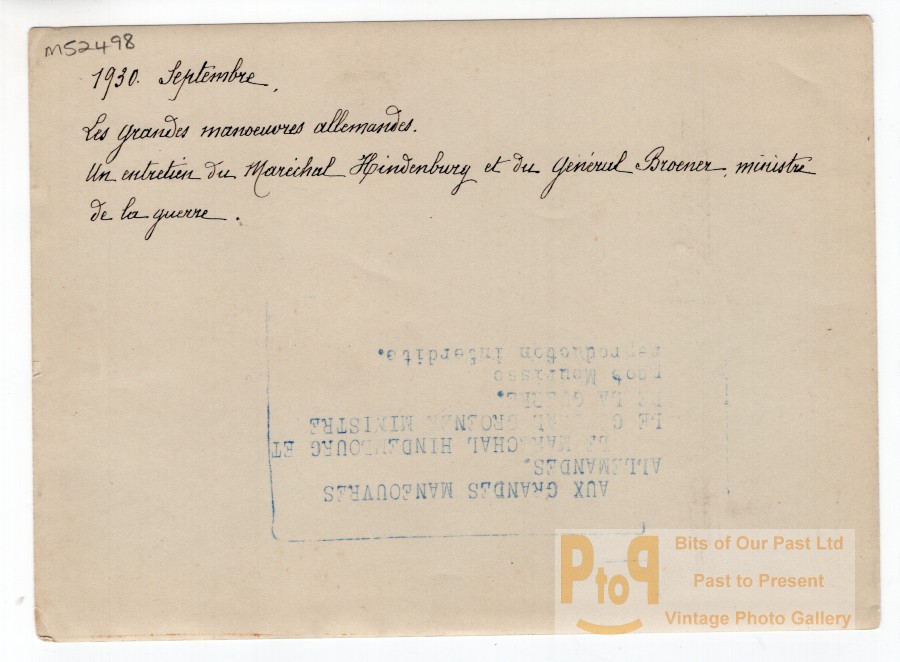 MS2498
1930. Septembre.
Les grandes manoeuvres allemandes.
Un entretien du Maréchal Hindenburg et du Général Broener, ministre
de la guerre.
AUX GRANDES MANEOUVRES
ALLEMANDES.
LE MARECHAL HINDENBOURG ET
LE G RAL GROENER MINISTRE
DE LA GUERRE.
phot Mourisse
reproduction interdite.
PtoP
Bits of Our Past Ltd
Past to Present
Vintage Photo Gallery